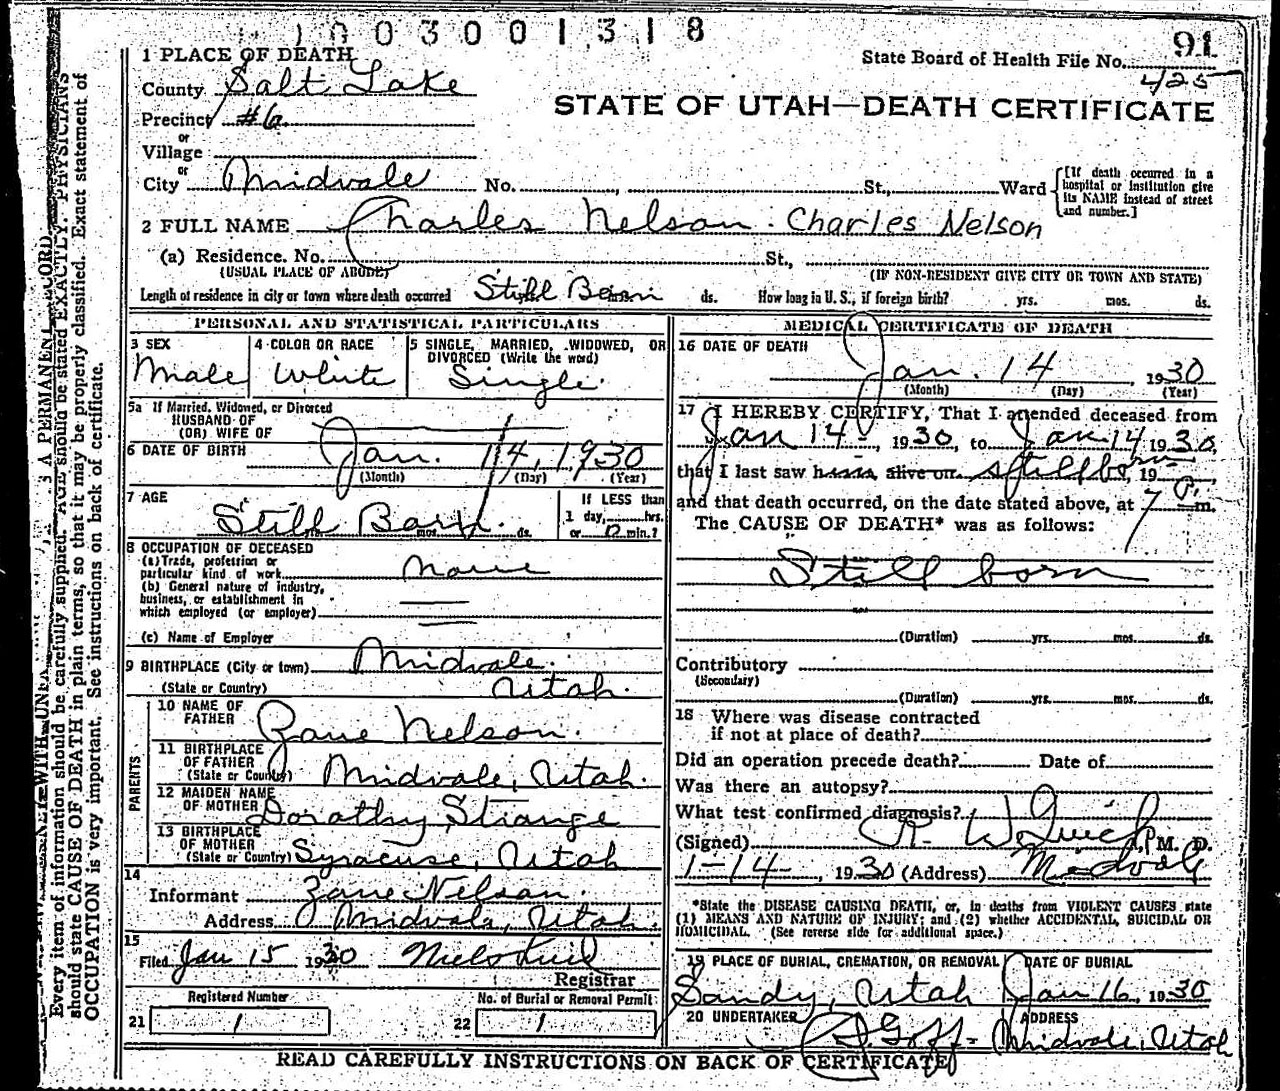 1003001318
91
State Board of Health File No. 425
STATE OF UTAH—DEATH CERTIFICATE
1 PLACE OF DEATH
County Salt Lake
Precinct #6
or
Village
or
City Midvale No. , St., Ward
[If death occurred in a hospital or institution give its NAME instead of street and number.]
2 FULL NAME Charles Nelson. Charles Nelson
(a) Residence. No. St.,
(USUAL PLACE OF ABODE) (IF NON-RESIDENT GIVE CITY OR TOWN AND STATE)
Length of residence in city or town where death occurred Still Born ds. How long in U. S., if foreign birth? yrs. mos. ds.
PERSONAL AND STATISTICAL PARTICULARS
3 SEX
Male
4 COLOR OR RACE
White
5 SINGLE, MARRIED, WIDOWED, OR
DIVORCED (Write the word)
Single
5a If Married, Widowed, or Divorced
HUSBAND OF
(OR) WIFE OF
6 DATE OF BIRTH Jan. 14, 1930
(Month) (Day) (Year)
7 AGE
Still Born. mos. ds.
If LESS than
1 day, hrs.
or 0 min.?
8 OCCUPATION OF DECEASED
(a) Trade, profession or
particular kind of work None
(b) General nature of industry,
business, or establishment in
which employed (or employer)
(c) Name of Employer
9 BIRTHPLACE (City or town) Midvale.
(State or Country) Utah.
PARENTS
10 NAME OF
FATHER Zane Nelson.
11 BIRTHPLACE
OF FATHER
(State or Country) Midvale, Utah.
12 MAIDEN NAME
OF MOTHER Dorothy Strange
13 BIRTHPLACE
OF MOTHER
(State or Country) Syracuse, Utah
14
Informant Zane Nelson.
Address Midvale, Utah.
15
Filed Jan 15 1930
Registrar
Registered Number
21 1
No. of Burial or Removal Permit
22 1
MEDICAL CERTIFICATE OF DEATH
16 DATE OF DEATH
Jan. 14, 1930
(Month) (Day) (Year)
17 I HEREBY CERTIFY, That I attended deceased from
Jan 14-, 1930, to Jan 14 1930,
that I last saw h alive on stillborn, 19
and that death occurred, on the date stated above, at 7 P. m.
The CAUSE OF DEATH* was as follows:
Still born
(Duration) yrs. mos. ds.
Contributory
(Secondary)
(Duration) yrs. mos. ds.
18 Where was disease contracted
if not at place of death?
Did an operation precede death? Date of
Was there an autopsy?
What test confirmed diagnosis?
(Signed) R. W. M. D.
1-14-, 1930 (Address) Midvale
*State the DISEASE CAUSING DEATH, or, in deaths from VIOLENT CAUSES, state
(1) MEANS AND NATURE OF INJURY; and (2) whether ACCIDENTAL, SUICIDAL OR
HOMICIDAL. (See reverse side for additional space.)
19 PLACE OF BURIAL, CREMATION, OR REMOVAL DATE OF BURIAL
Sandy, Utah Jan 16, 1930
20 UNDERTAKER ADDRESS
Goff- Midvale, Utah
READ CAREFULLY INSTRUCTIONS ON BACK OF CERTIFICATE
A PERMANENT RECORD
Every item of information should be carefully supplied. AGE should be stated EXACTLY. PHYSICIANS
should state CAUSE OF DEATH in plain terms, so that it may be properly classified. Exact statement of
OCCUPATION is very important. See instructions on back of certificate.